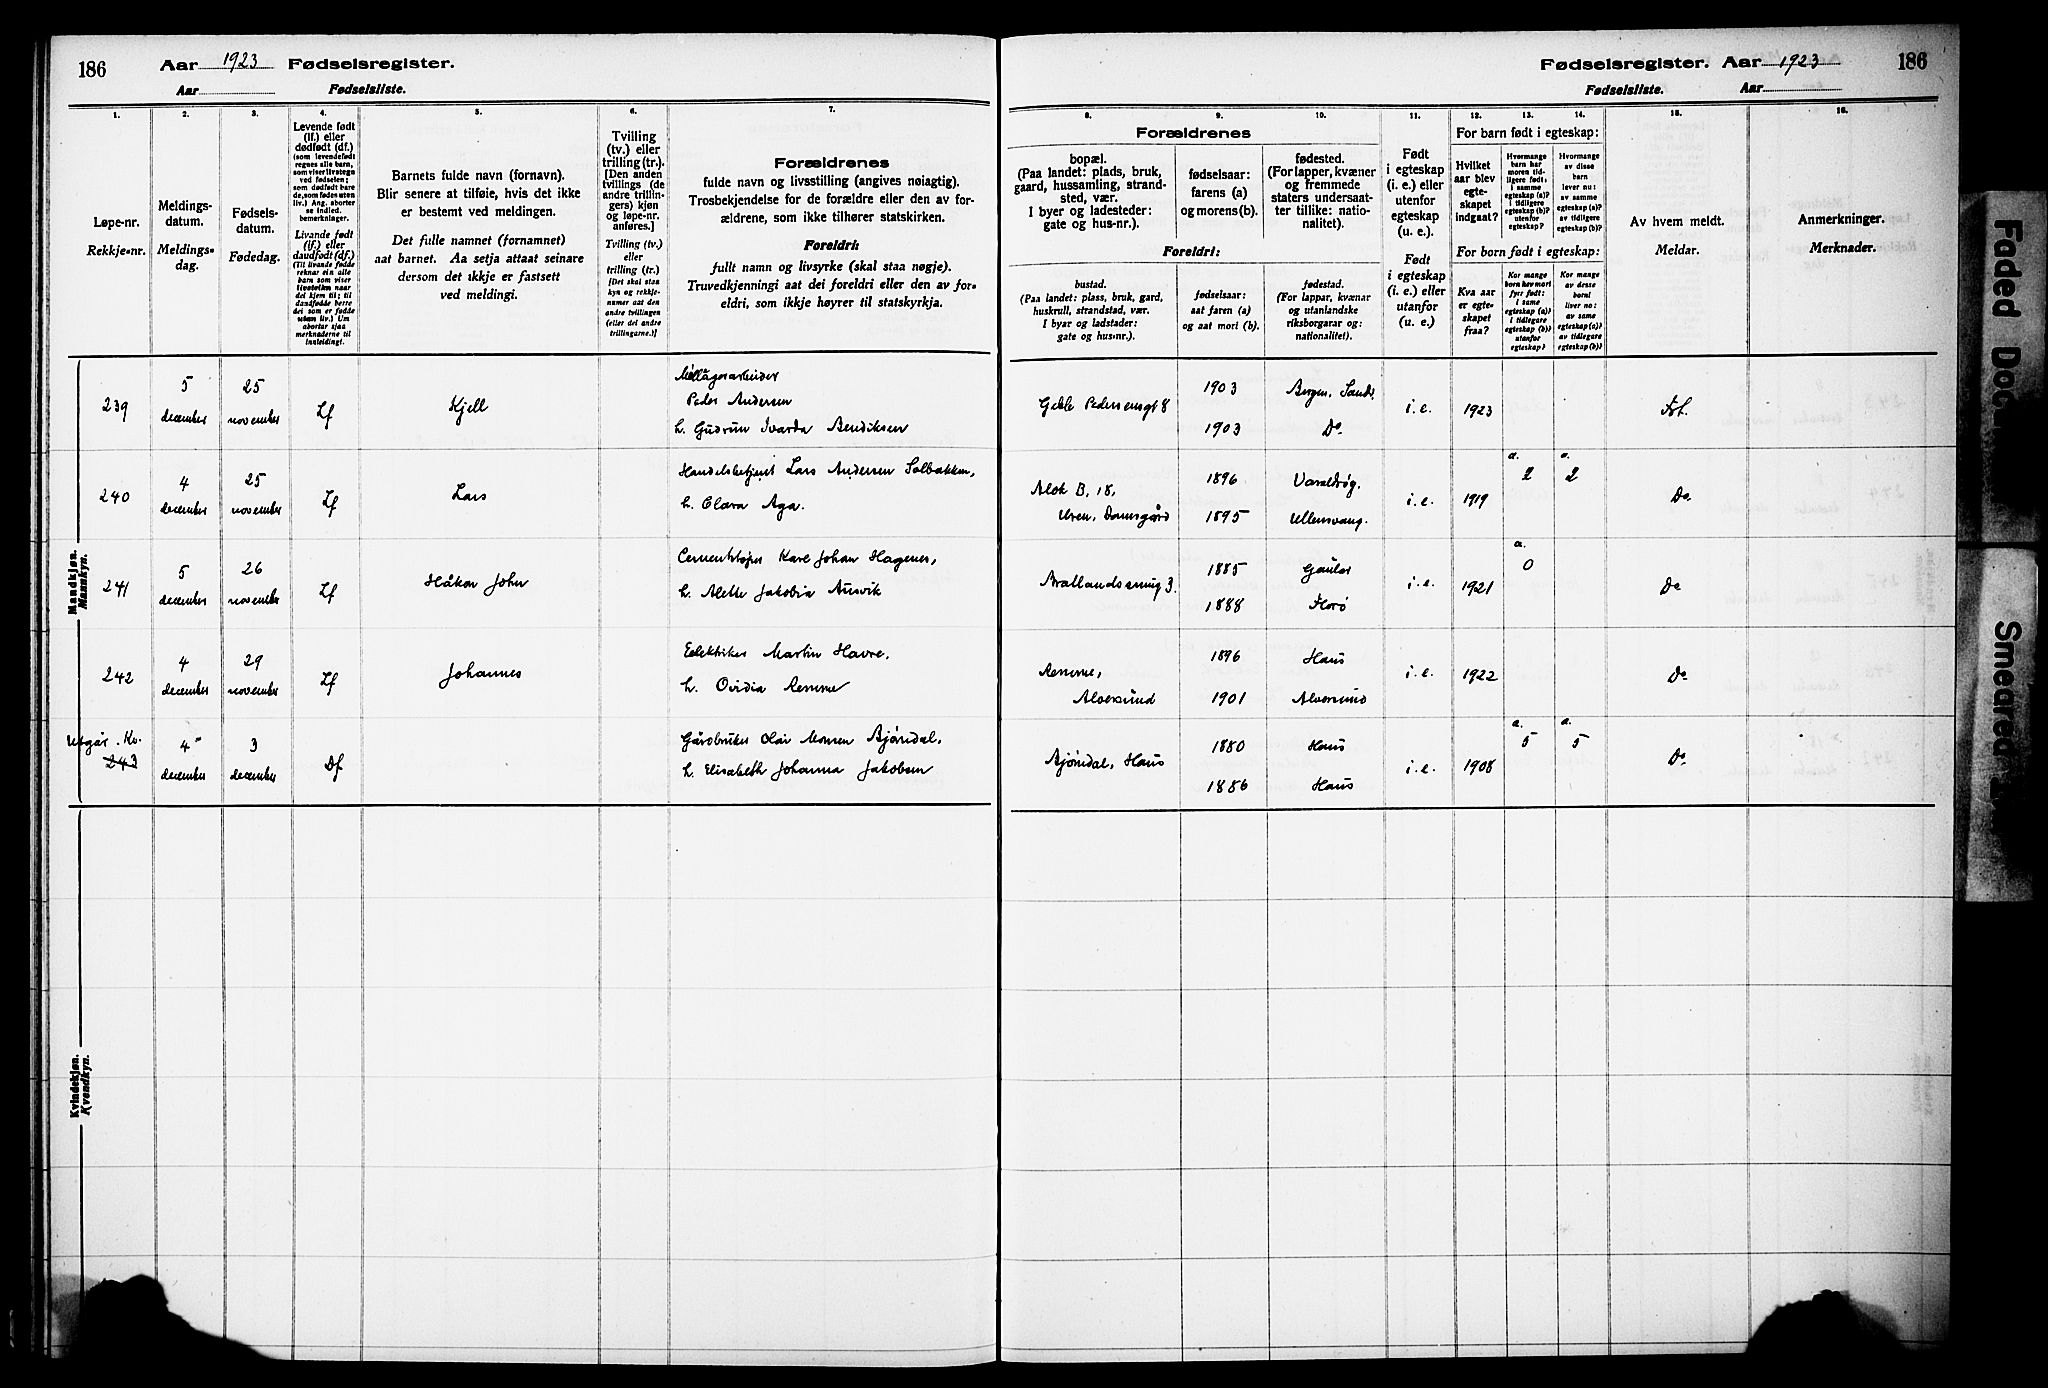 186 Aar 1923 Fødselsregister.
Aar Fødselsliste.
Fødselsregister. Aar 1923 186
Fødselsliste. Aar
1. 2. 3. 4. 5. 6. 7.
Løpe-nr.
Rekkje-nr.
Meldings-
datum.
Meldings-
dag.
Fødsels-
datum.
Fødedag.
Levende født
(lf.) eller
dødfødt (df.)
(som levendefødt
regnes alle barn,
som viser livstegn
ved fødselen;
som dødfødt bare
de, som fødes uten
liv.) Ang. aborter
se indled.
bemerkninger.
Livande født
(lf.) eller
daudfødt (df.)
(Til livande fødde
reknar ein alle
barn som viser
livsteikn naar
dei kjem til; til
daudfødde berre
dei som er fødde
utan liv.) Um
abortar sjaa
merknaderne til
innleidingi.
Barnets fulde navn (fornavn).
Blir senere at tilføie, hvis det ikke
er bestemt ved meldingen.
Det fulle namnet (fornamnet)
aat barnet. Aa setja attaat seinare
dersom det ikkje er fastsett
ved meldingi.
Tvilling
(tv.) eller
trilling (tr.).
[Den anden
tvillings (de
andre trillin-
gers) kjøn
og løpe-nr.
anføres.]
Tvilling (tv.)
eller
trilling (tr.)
[Det skal staa
kyn og rekkje-
numer aat den
andre tvillingen
(eller dei andre
trillingarne.)]
Forældrenes
fulde navn og livsstilling (angives nøiagtig).
Trosbekjendelse for de forældre eller den av for-
ældrene, som ikke tilhører statskirken.
Foreldri:
fullt namn og livsyrke (skal staa nøgje).
Truvedkjenningi aat dei foreldri eller den av for-
eldri, som ikkje høyrer til statskyrkja.
8. 9. 10. 11. 12. 13. 14. 15. 16.
Forældrenes
bopæl.
(Paa landet: plads, bruk,
gaard, hussamling, strand-
sted, vær.
I byer og ladesteder:
gate og hus-nr.).
fødselsaar:
farens (a)
og morens (b).
fødested.
(For lapper, kvæner
og fremmede
staters undersaat-
ter tillike: natio-
nalitet).
Foreldri:
bustad.
(Paa landet: plass, bruk, gard,
huskrull, strandstad, vær.
I byar og ladstader:
gate og hus-nr.).
fødselsaar:
aat faren (a)
og aat mori (b).
fødestad.
(For lappar, kvænar
og utanlandske
riksborgarar og:
nationalitet).
Født
i egteskap
(i. e.) eller
utenfor
egteskap
(u. e.).
Født
i egteskap
(i. e.) eller
utanfor
(u. e.)
For barn født i egteskap:
Hvilket
aar blev
egte-
skapet
indgaat?
Hvormange
barn har
moren tid-
ligere født:
i samme
egteskap (a)?
i tidligere
egteskap (b)?
utenfor
egteskap?
Hvormange
av disse
barn
lever nu:
av samme
egteskap (a)?
av tidligere
egteskap (b)?
For born født i egteskap:
Kva aar
er egte-
skapet
fraa?
Kor mange
born hev mori
fyrr født:
i same
egteskap (a)?
i tidlegare
egteskap (b)?
utanfor
egteskap?
Kor mange
av desse
borni
liver no:
av same
egteskap (a)?
av tidlegare
egteskap (b)?
Av hvem meldt.
Meldar.
Anmerkninger.
Merknader.
Mandkjøn.
Mannkyn.
239 5 december 25 november Lf Kjell
Peder Andersen
h. Gudrun Ivarda Bendiksen
Gjeble Pedersensgt 8 1903 Bergen, Sandv. i.e. 1923 Fbl.
1903 Do.
240 4 december 25 november Lf Lars
Handelsbetjent Lars Andersen Solbakken,
h. Clara Aga.
Alok B. 18,
Uren, Damsgård
1896 Varaldsøy.
1895 Ullensvang.
i.e. 1919 a. 2 a. 2 Do.
241 5 december 26 november Lf Håkon John
Cementstøper Kare Johan Hagenes,
h. Alette Jakobia Ausvik
Brattlandssmug 3.
1885 Gaular
1888 Florø
i.e. 1921 a. 0 Do
242 4 december 29 november Lf Johannes
Elektriker Martin Havre,
h. Ovidia Remme
Remme,
Alversund
1896 Haus
1901 Alversund
i.e. 1922 Do.
Utgår. Kv.
243 4 december 3 december Df
Gårdbruker Olai Monsen Bjørndal,
h. Elisabeth Johanna Jakobsen
Bjørndal, Haus
1880 Haus
1886 Haus
i.e. 1908 a. 5 a. 5 Do.
Kvindekjøn.
Kvendkyn.
Faded Doc
Smeared